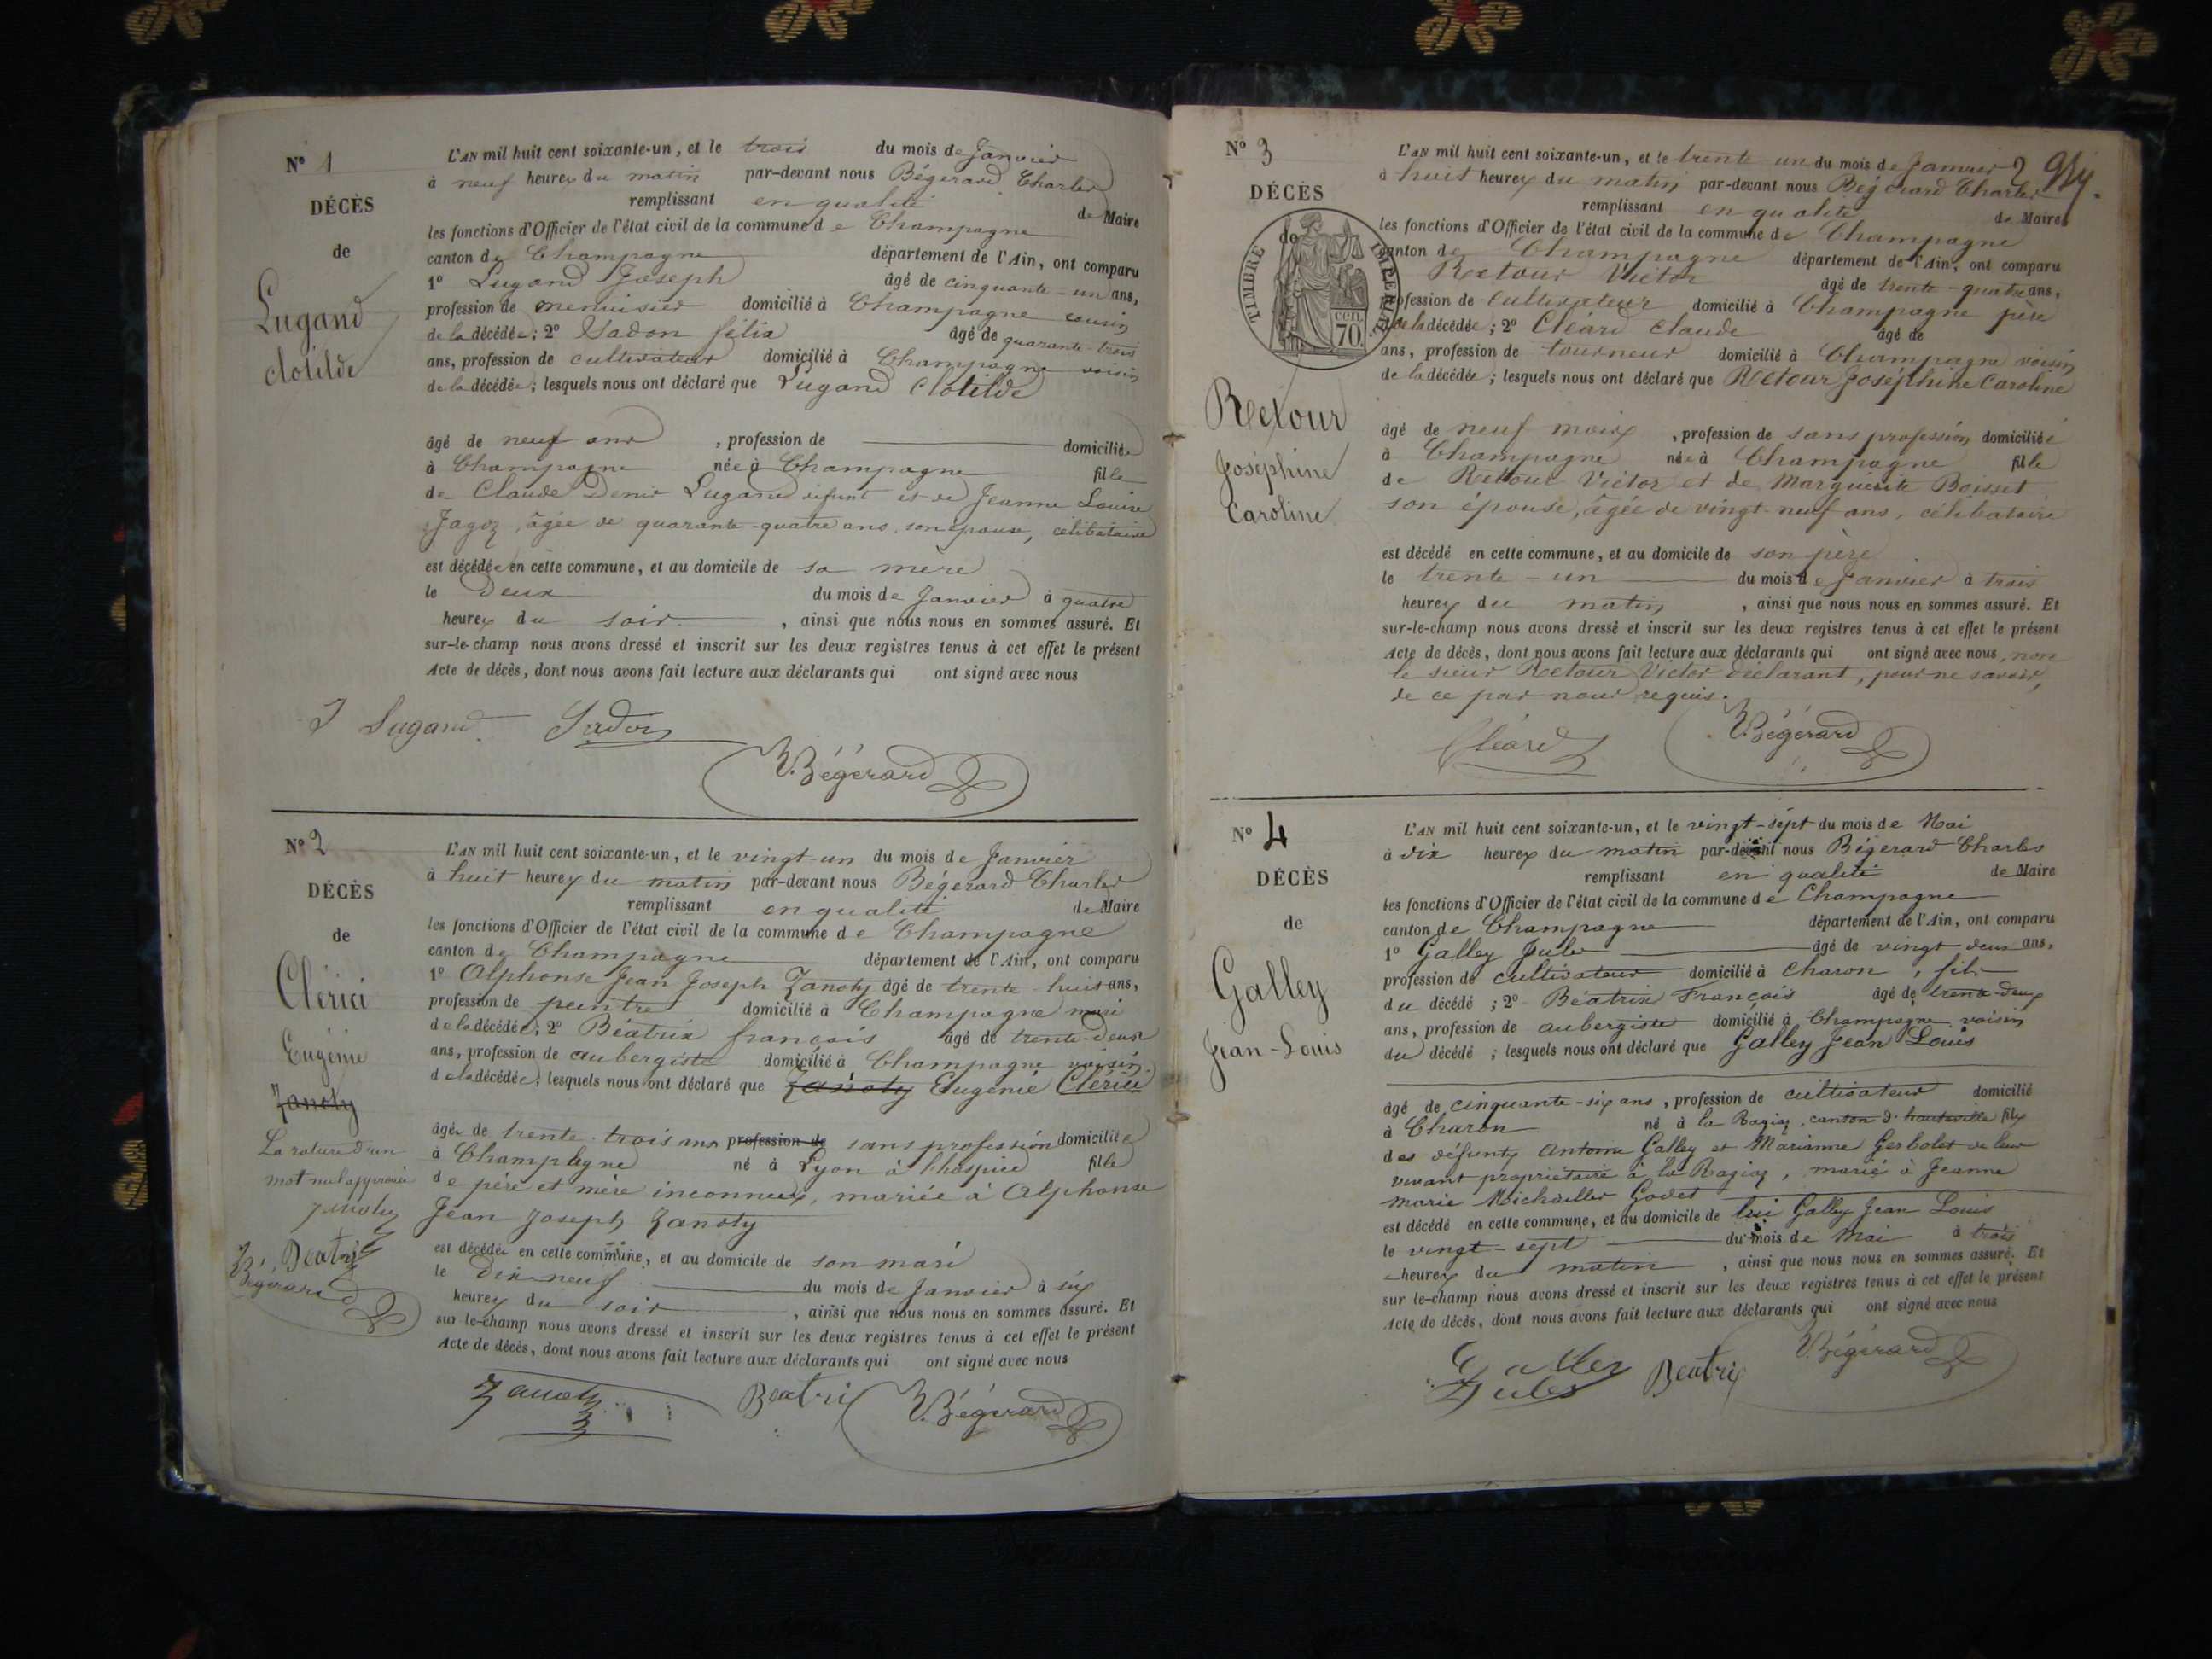 N° 1
DÉCÈS
de
Lugand
clotilde
L'AN mil huit cent soixante-un, et le trois du mois de Janvier
à neuf heures du matin par-devant nous Bégerard Charles
remplissant en qualité de Maire
les fonctions d'Officier de l'état civil de la commune de Champagne
canton de Champagne département de l'Ain, ont comparu
1° Lugand Joseph âgé de cinquante-un ans,
profession de menuisier domicilié à Champagne cousin
de la décédée; 2° Sadon félix âgé de quarante-trois
ans, profession de cultivateur domicilié à Champagne voisin
de la décédée; lesquels nous ont déclaré que Lugand Clotilde
âgé de neuf ans, profession de domiciliée
à Champagne née à Champagne fille
de Claude Denis Lugand défunt et de Jeanne Louise
Jagoz, âgée de quarante-quatre ans, son épouse, célibataire
est décédée en cette commune, et au domicile de sa mère
le Deux du mois de Janvier à quatre
heures du soir, ainsi que nous nous en sommes assuré. Et
sur-le-champ nous avons dressé et inscrit sur les deux registres tenus à cet effet le présent
Acte de décès, dont nous avons fait lecture aux déclarants qui ont signé avec nous
J Lugand Sadon
Bégerard
N° 2
DÉCÈS
de
Clérici
Eugénie
Zanoty
La rature d'un
mot nul approuvée
Zanoty
Beatrix
Bégerard
L'AN mil huit cent soixante-un, et le vingt-un du mois de Janvier
à huit heures du matin par-devant nous Bégerard Charles
remplissant en qualité de Maire
les fonctions d'Officier de l'état civil de la commune de Champagne
canton de Champagne département de l'Ain, ont comparu
1° Alphonse Jean Joseph Zanoty âgé de trente-huit ans,
profession de peintre domicilié à Champagne mari
de la décédée; 2° Béatrix françois âgé de trente-deux
ans, profession de aubergiste domicilié à Champagne voisin
de la décédée; lesquels nous ont déclaré que Zanoty Eugénie Clérici
âgée de trente-trois ans profession de sans profession domiciliée
à Champagne né à Lyon à l'hospice fille
de père et mère inconnus, mariée à Alphonse
Jean Joseph Zanoty
est décédée en cette commune, et au domicile de son mari
le Dix-neuf du mois de Janvier à six
heures du soir, ainsi que nous nous en sommes assuré. Et
sur-le-champ nous avons dressé et inscrit sur les deux registres tenus à cet effet le présent
Acte de décès, dont nous avons fait lecture aux déclarants qui ont signé avec nous
Zanoty Beatrix Bégerard
N° 3
DÉCÈS
de
TIMBRE IMPÉRIAL
70 cen
Retour
Joséphine
Caroline
L'AN mil huit cent soixante-un, et le trente un du mois de Janvier 2
à huit heures du matin par-devant nous Bégerard Charles
remplissant en qualité de Maire
les fonctions d'Officier de l'état civil de la commune de Champagne
canton de Champagne département de l'Ain, ont comparu
Retour Victor âgé de trente-quatre ans,
profession de Cultivateur domicilié à Champagne père
de la décédée; 2° Cléard Claude âgé de
ans, profession de tourneur domicilié à Champagne voisin
de la décédée; lesquels nous ont déclaré que Retour Joséphine Caroline
âgé de neuf mois, profession de sans profession domiciliée
à Champagne née à Champagne fille
de Retour Victor et de Marguerite Boisset
son épouse, âgée de vingt-neuf ans, célibataire
est décédé en cette commune, et au domicile de son père
le trente-un du mois de Janvier à trois
heures du matin, ainsi que nous nous en sommes assuré. Et
sur-le-champ nous avons dressé et inscrit sur les deux registres tenus à cet effet le présent
Acte de décès, dont nous avons fait lecture aux déclarants qui ont signé avec nous, non
le sieur Retour Victor déclarant, pour ne savoir,
de ce par nous requis.
Cléard Bégerard
N° 4
DÉCÈS
de
Galley
Jean-Louis
L'AN mil huit cent soixante-un, et le vingt-sept du mois de Mai
à dix heures du matin par-devant nous Bégerard Charles
remplissant en qualité de Maire
les fonctions d'Officier de l'état civil de la commune de Champagne
canton de Champagne département de l'Ain, ont comparu
1° Galley Jules âgé de vingt deux ans,
profession de cultivateur domicilié à Charon, fils
du décédé; 2° Béatrix François âgé de trente-deux
ans, profession de aubergiste domicilié à Champagne voisin
du décédé; lesquels nous ont déclaré que Galley Jean Louis
âgé de cinquante-six ans, profession de cultivateur domicilié
à Charon né à la Ragiaz, canton d'hauteville fils
des défunts Antoine Galley et Marianne Gerbolet de leur
vivant propriétaire à la Ragiaz, marié à Jeanne
Marie Michailler Godet
est décédé en cette commune, et au domicile de lui Galley Jean Louis
le vingt-sept du mois de Mai à trois
heures du matin, ainsi que nous nous en sommes assuré. Et
sur le-champ nous avons dressé et inscrit sur les deux registres tenus à cet effet le présent
Acte de décès, dont nous avons fait lecture aux déclarants qui ont signé avec nous
Galley
Jules Beatrix Bégerard